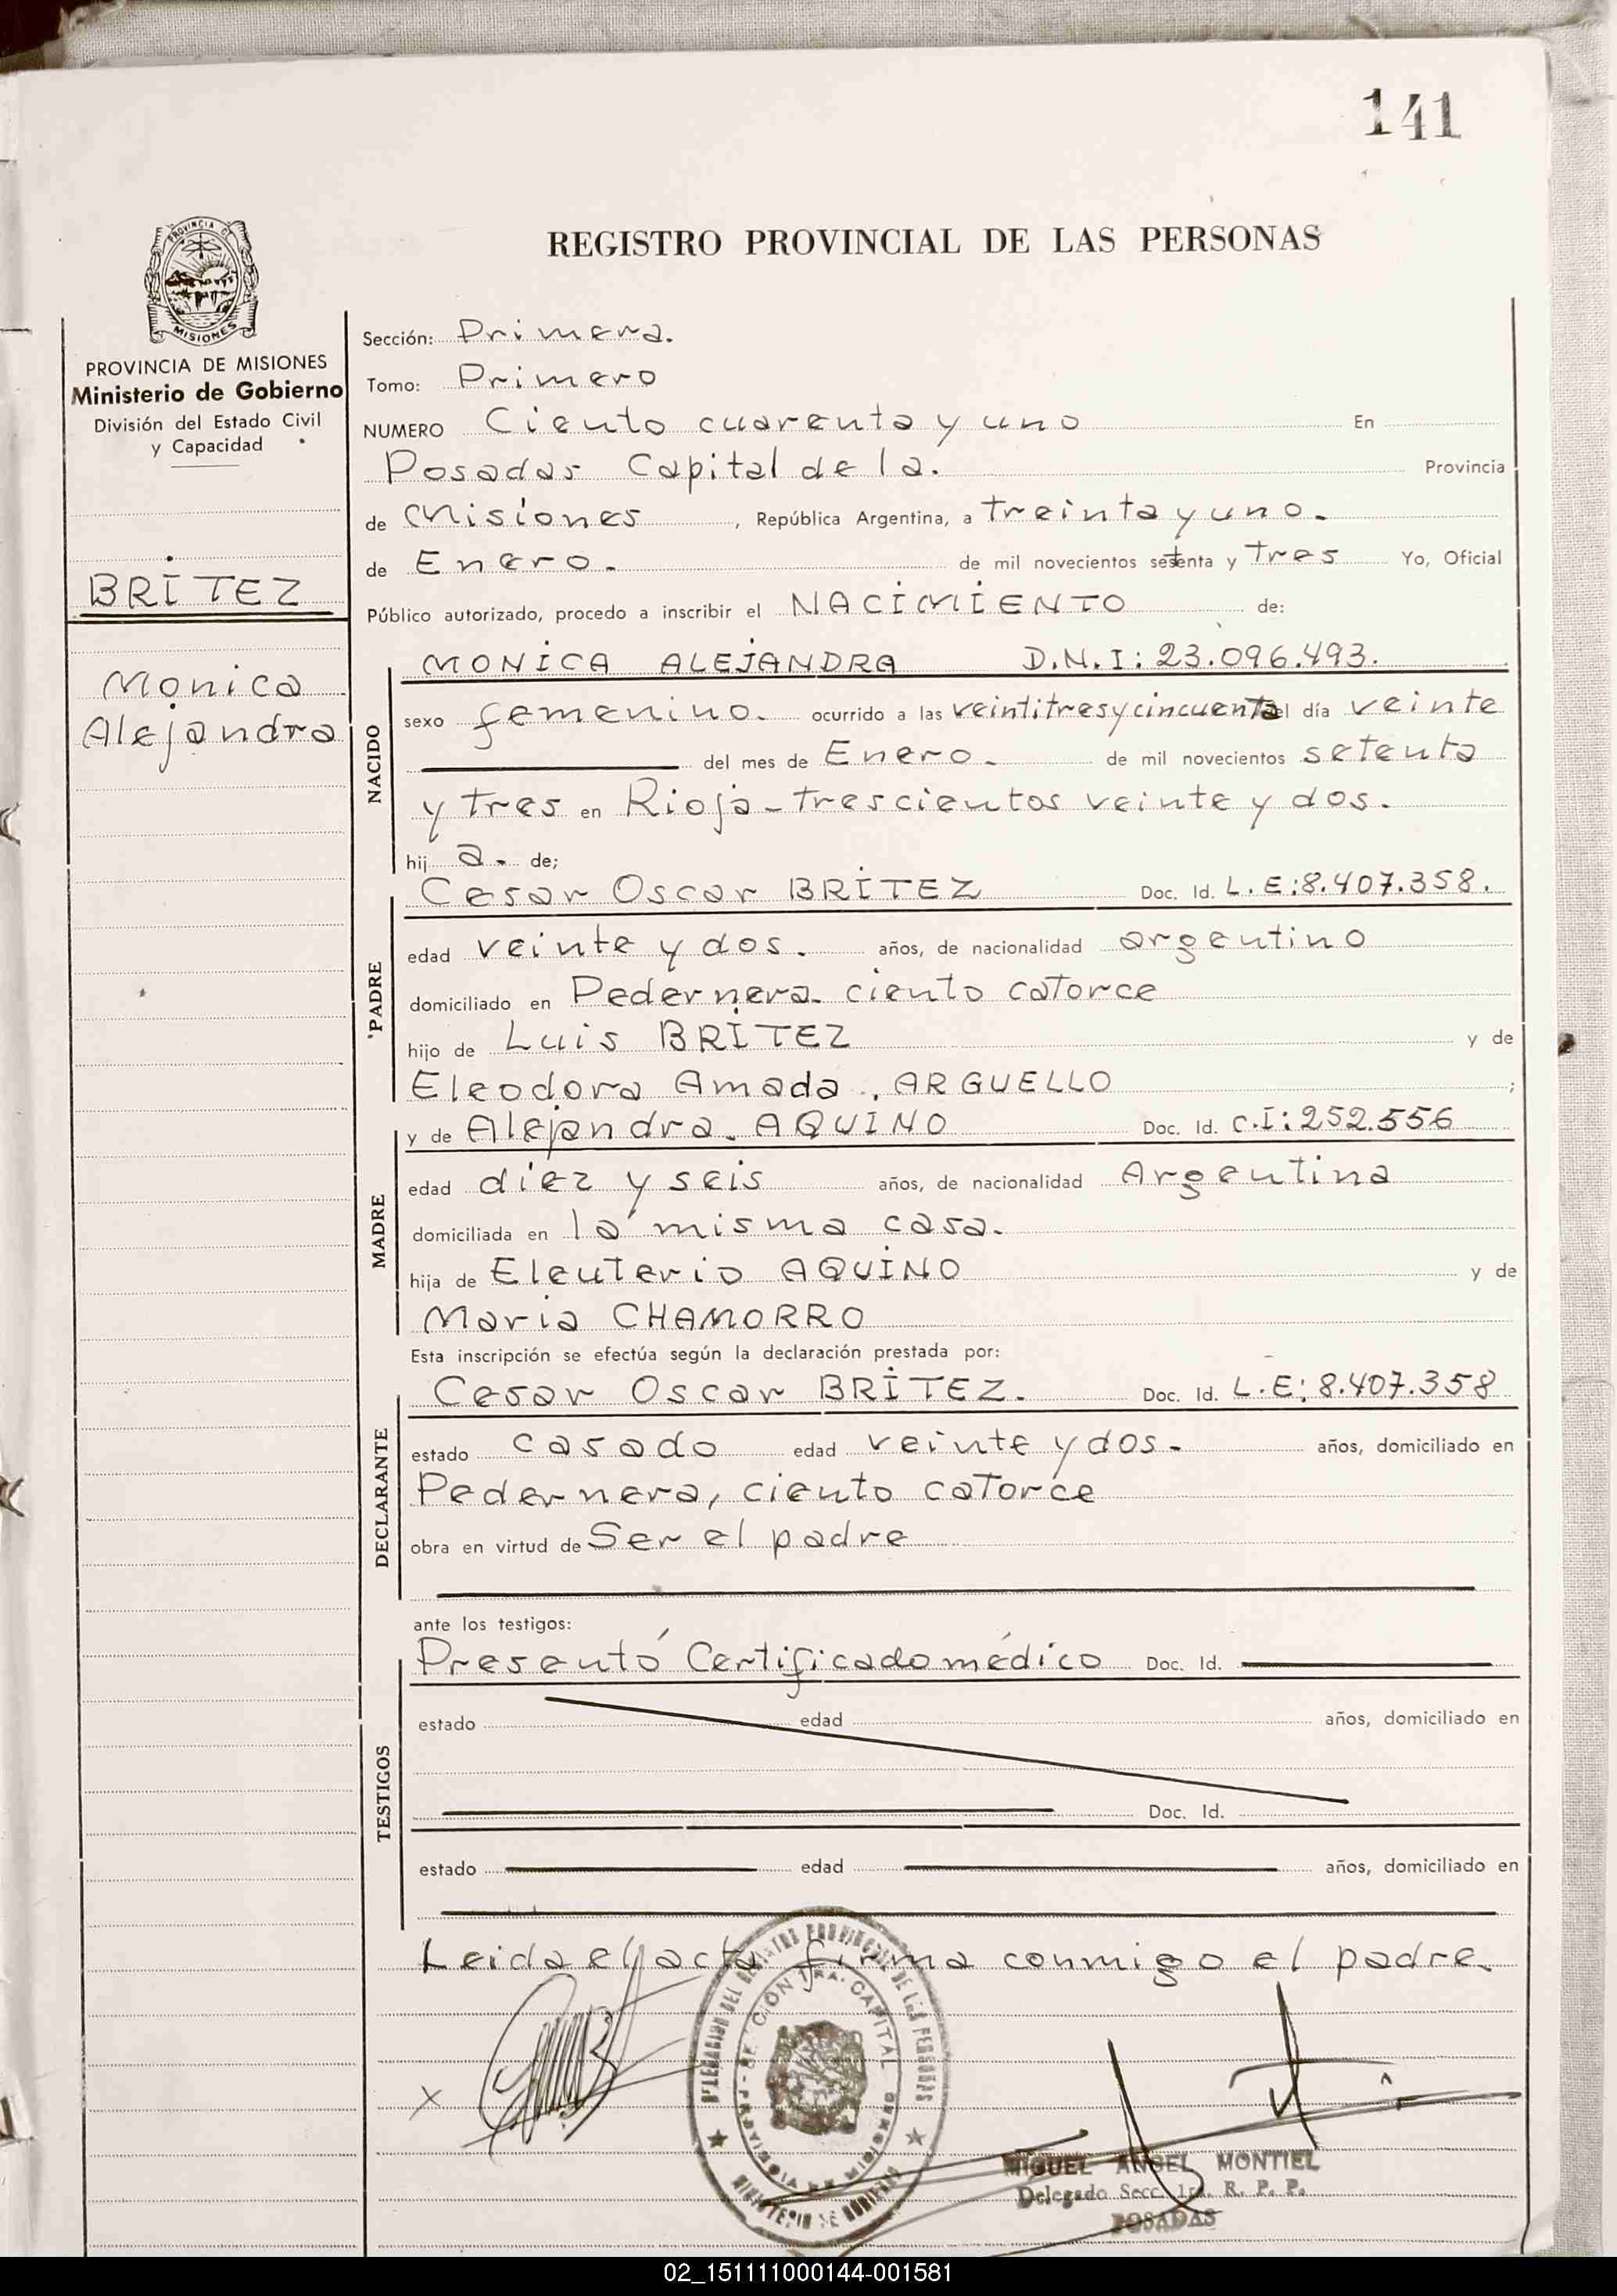 141
REGISTRO PROVINCIAL DE LAS PERSONAS
PROVINCIA DE
MISIONES
PROVINCIA DE MISIONES
Ministerio de Gobierno
División del Estado Civil
y Capacidad
BRITEZ
Monica
Alejandra
Sección: Primera.
Tomo: Primero
NUMERO Ciento cuarenta y uno En
Posadas Capital de la. Provincia
de Misiones, República Argentina, a treinta y uno.
de Enero. de mil novecientos setenta y tres Yo, Oficial
Público autorizado, procedo a inscribir el NACIMIENTO de:
NACIDO
MONICA ALEJANDRA D.N.I: 23.096.493.
sexo femenino. ocurrido a las veintitres y cincuenta el día veinte
del mes de Enero. de mil novecientos setenta
y tres en Rioja - trescientos veinte y dos.
hij a. de;
PADRE
Cesar Oscar BRITEZ Doc. Id. L.E:8.407.358.
edad veinte y dos. años, de nacionalidad argentino
domiciliado en Pedernera. ciento catorce
hijo de Luis BRITEZ y de
Eleodora Amada. ARGUELLO ;
MADRE
y de Alejandra. AQUINO Doc. Id. C.I:252.556
edad diez y seis años, de nacionalidad Argentina
domiciliada en la misma casa.
hija de Eleuterio AQUINO y de
Maria CHAMORRO
Esta inscripción se efectúa según la declaración prestada por:
DECLARANTE
Cesar Oscar BRITEZ. Doc. Id. L.E: 8.407.358
estado casado edad veinte y dos. años, domiciliado en
Pedernera, ciento catorce
obra en virtud de Ser el padre
ante los testigos:
TESTIGOS
Presentó Certificado médico Doc. Id.
estado edad años, domiciliado en
Doc. Id.
estado edad años, domiciliado en
Leida el acta firma conmigo el padre.
DELEGACION DEL REGISTRO PROVINCIAL DE LAS PERSONAS
SECCION 1RA. CAPITAL
PROVINCIA DE MISIONES
MINISTERIO DE GOBIERNO
X
MIGUEL ANGEL MONTIEL
Delegado Secc. 1ra. R. P. P.
POSADAS
02_151111000144-001581